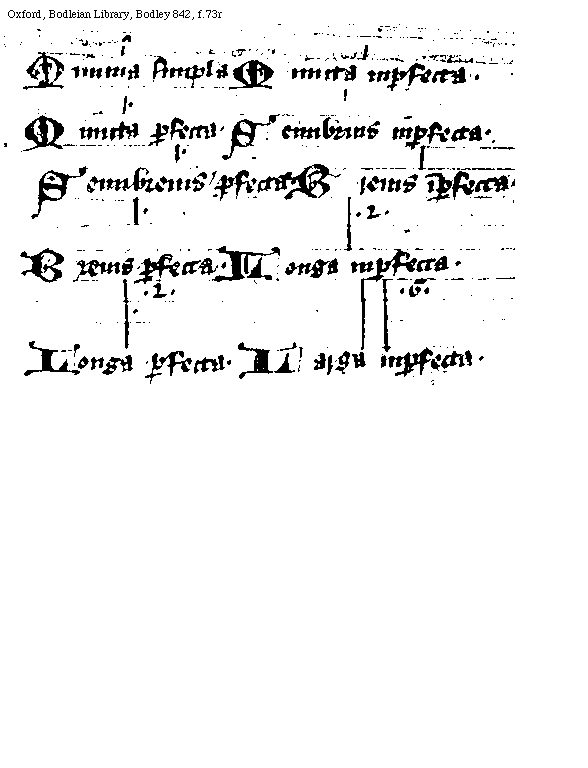 Oxford, Bodleian Library, Bodley 842, f.73r
Minima simpla Minuta inperfecta.
Minuta perfecta. Semibrius inperfecta.
Semibreuis perfecta. Breuis iperfecta.
.2.
Breuis perfecta. Longa inperfecta.
.2. .6.
Longa perfecta. Larga inperfecta.